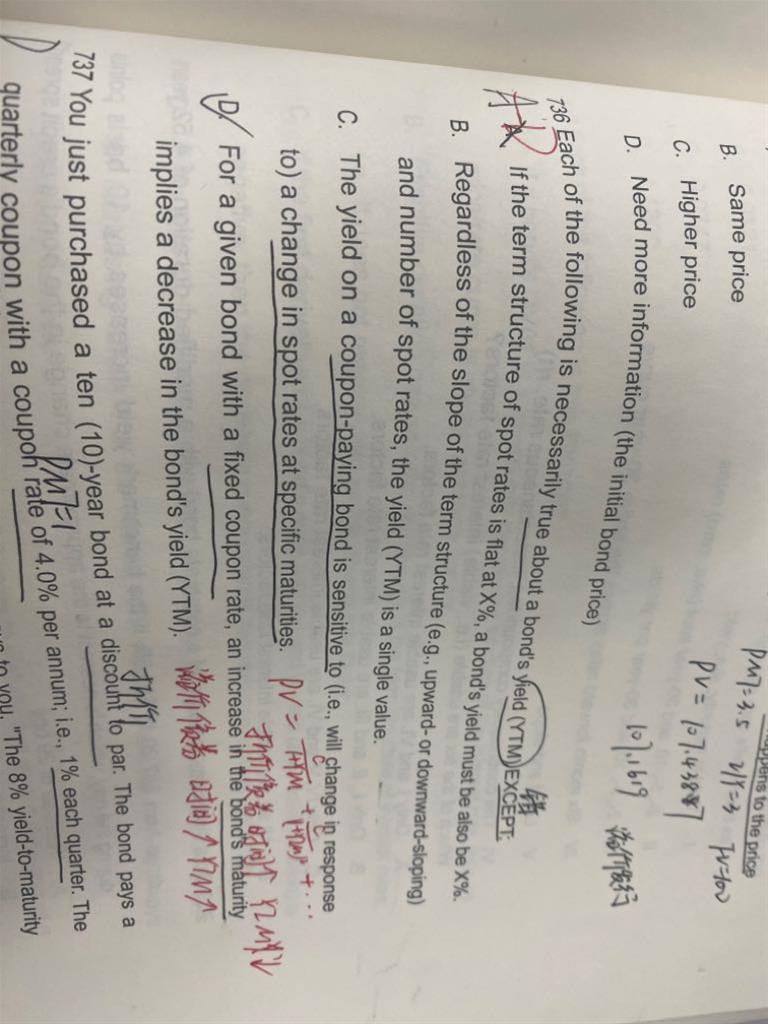 appens to the price
B. Same price
PMT=3.5 I/Y=3 FV=100
C. Higher price
PV=107.43887
D. Need more information (the initial bond price)
107.1619 溢价发行
736 Each of the following is necessarily true about a bond's yield (YTM) EXCEPT:
错
A If the term structure of spot rates is flat at X%, a bond's yield must be also be X%.
B. Regardless of the slope of the term structure (e.g., upward- or downward-sloping)
and number of spot rates, the yield (YTM) is a single value.
C. The yield on a coupon-paying bond is sensitive to (i.e., will change in response
to) a change in spot rates at specific maturities.
D. For a given bond with a fixed coupon rate, an increase in the bond's maturity
implies a decrease in the bond's yield (YTM).
折价
737 You just purchased a ten (10)-year bond at a discount to par. The bond pays a
PMT=1
quarterly coupon with a coupon rate of 4.0% per annum; i.e., 1% each quarter. The
to you. "The 8% yield-to-maturity